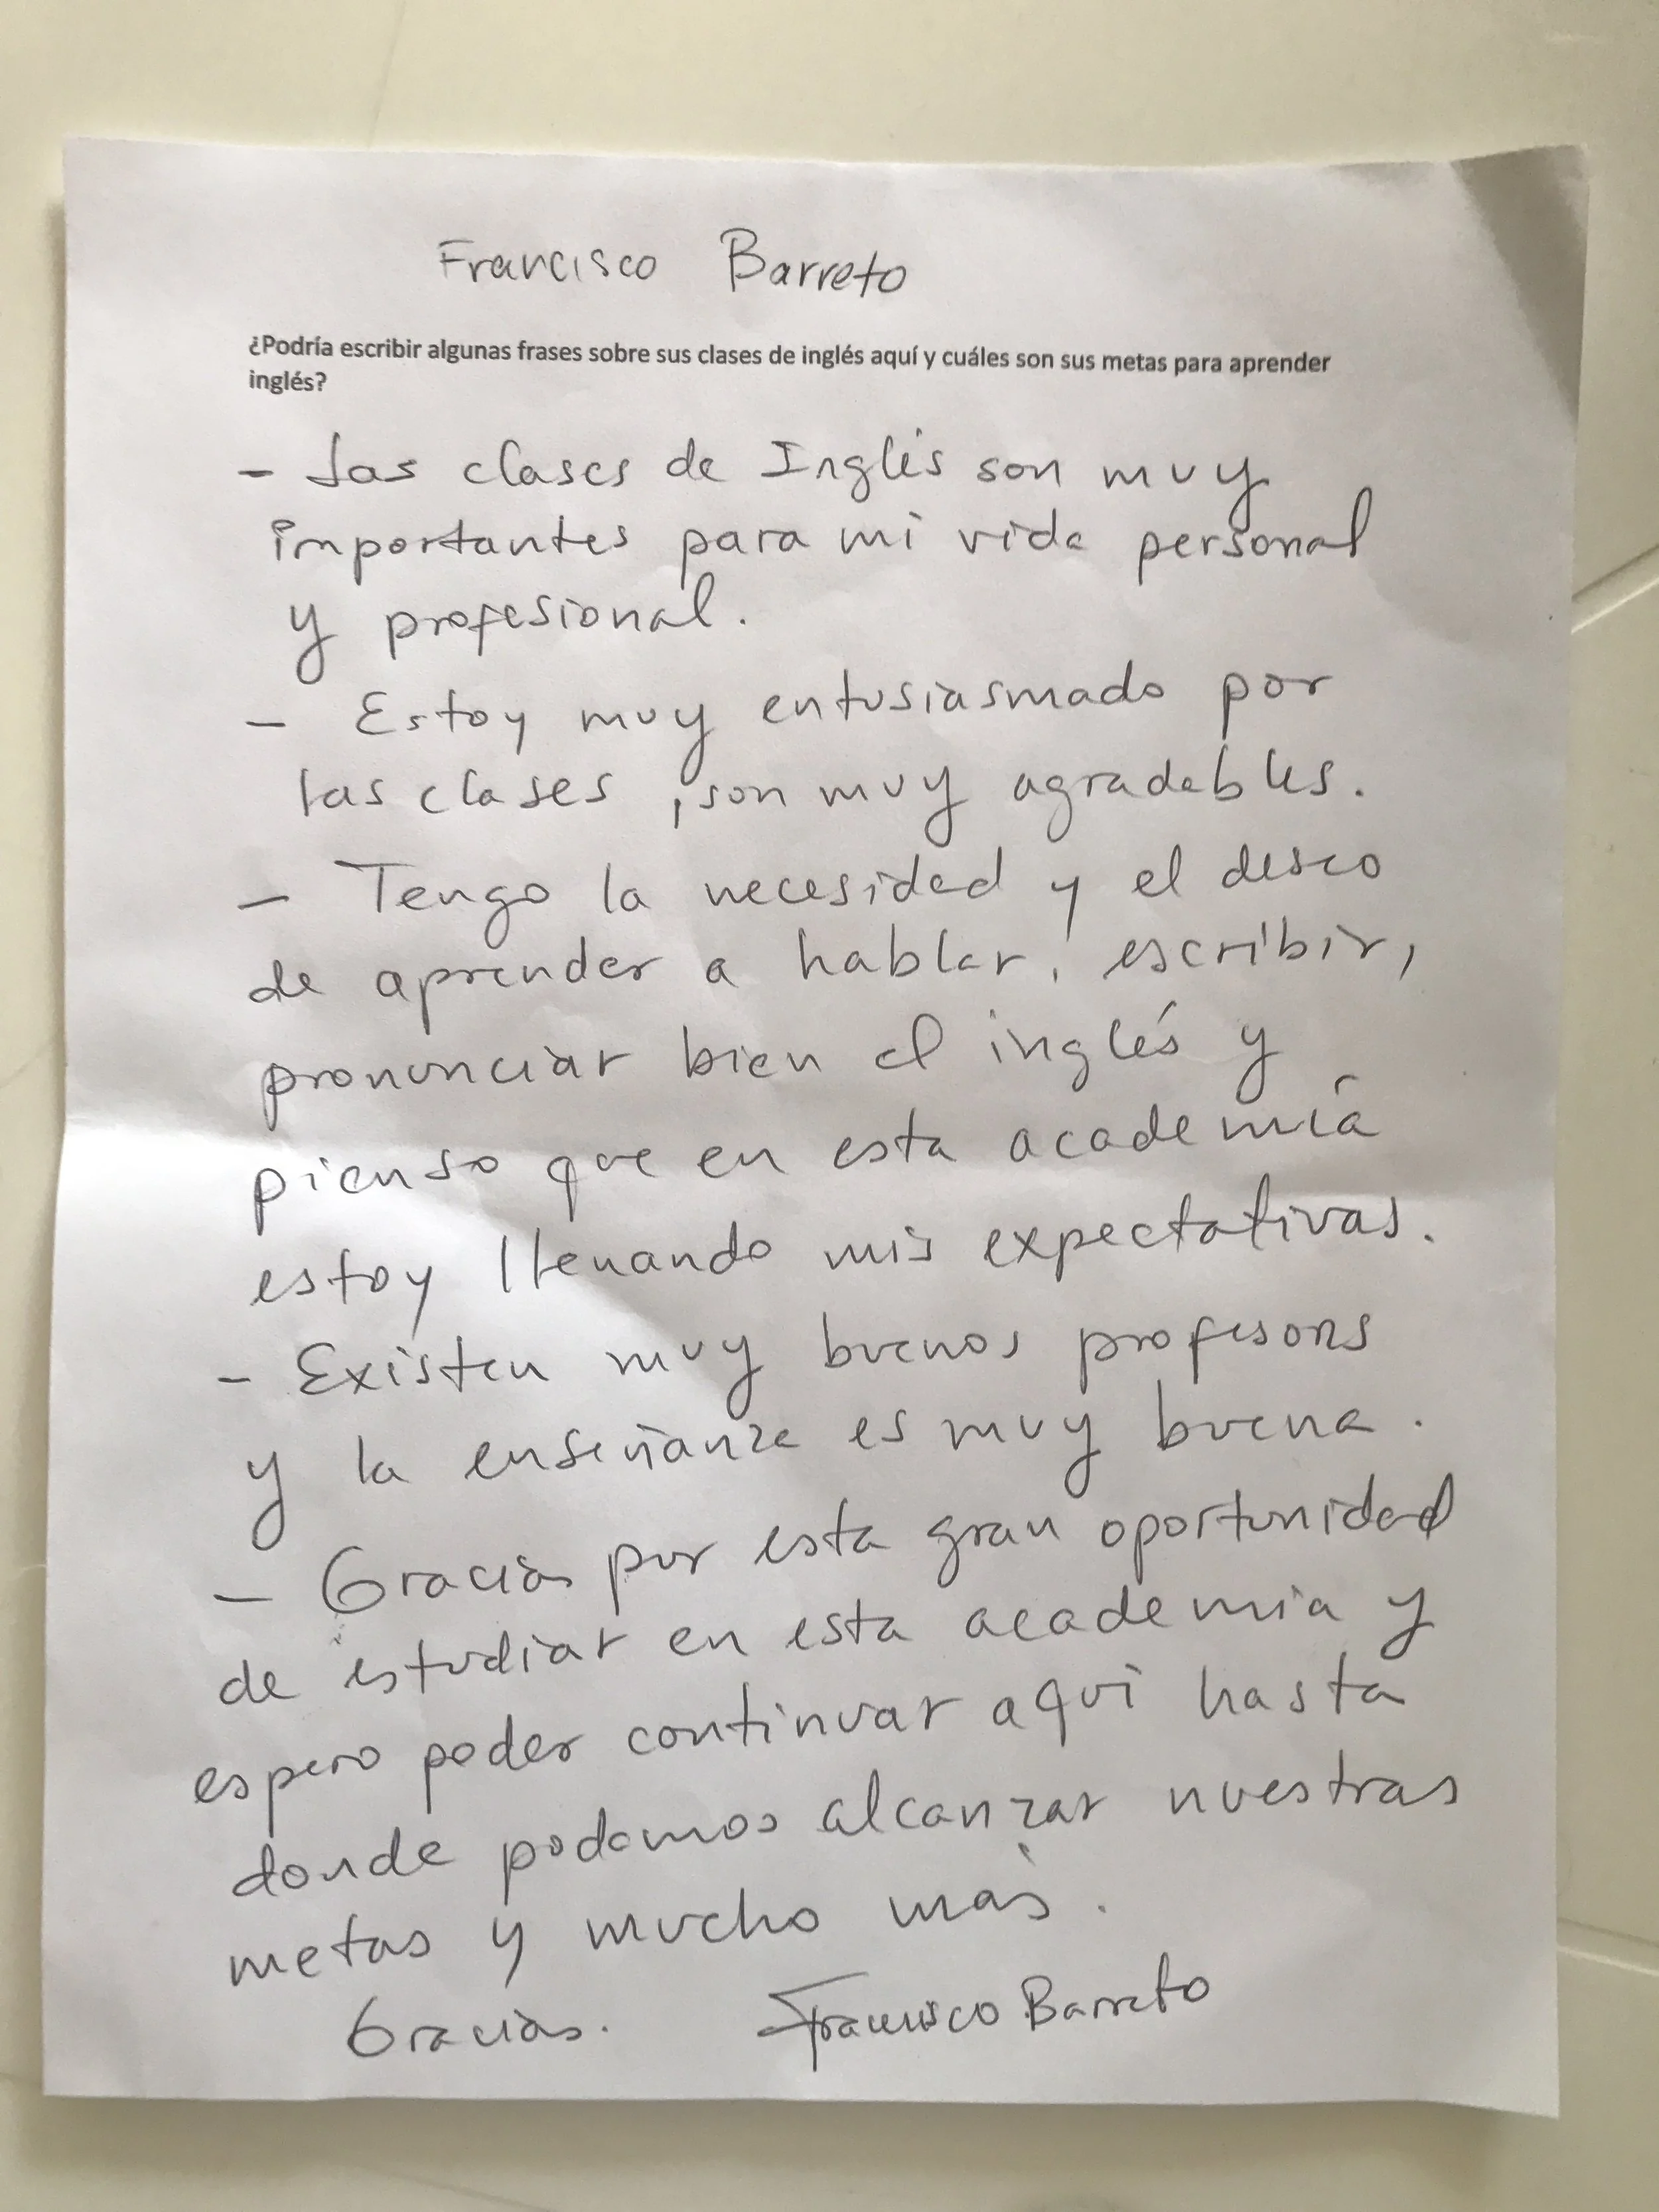 Francisco Barreto
¿Podría escribir algunas frases sobre sus clases de inglés aquí y cuáles son sus metas para aprender
inglés?
- Las clases de Inglés son muy
importantes para mi vida personal
y profesional.
- Estoy muy entusiasmado por
las clases, son muy agradables.
- Tengo la necesidad y el deseo
de aprender a hablar, escribir,
pronunciar bien el inglés y
pienso que en esta academía
estoy llenando mis expectativas.
- Existen muy buenos profesores
y la enseñanza es muy buena.
- Gracias por esta gran oportunidad
de estudiar en esta academia y
espero poder continuar aquí hasta
donde podamos alcanzar nuestras
metas y mucho más.
Gracias. Francisco Barreto